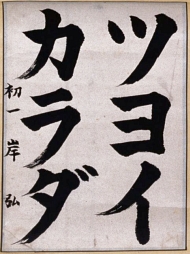 ツヨイ
カラダ
初一 岸 弘